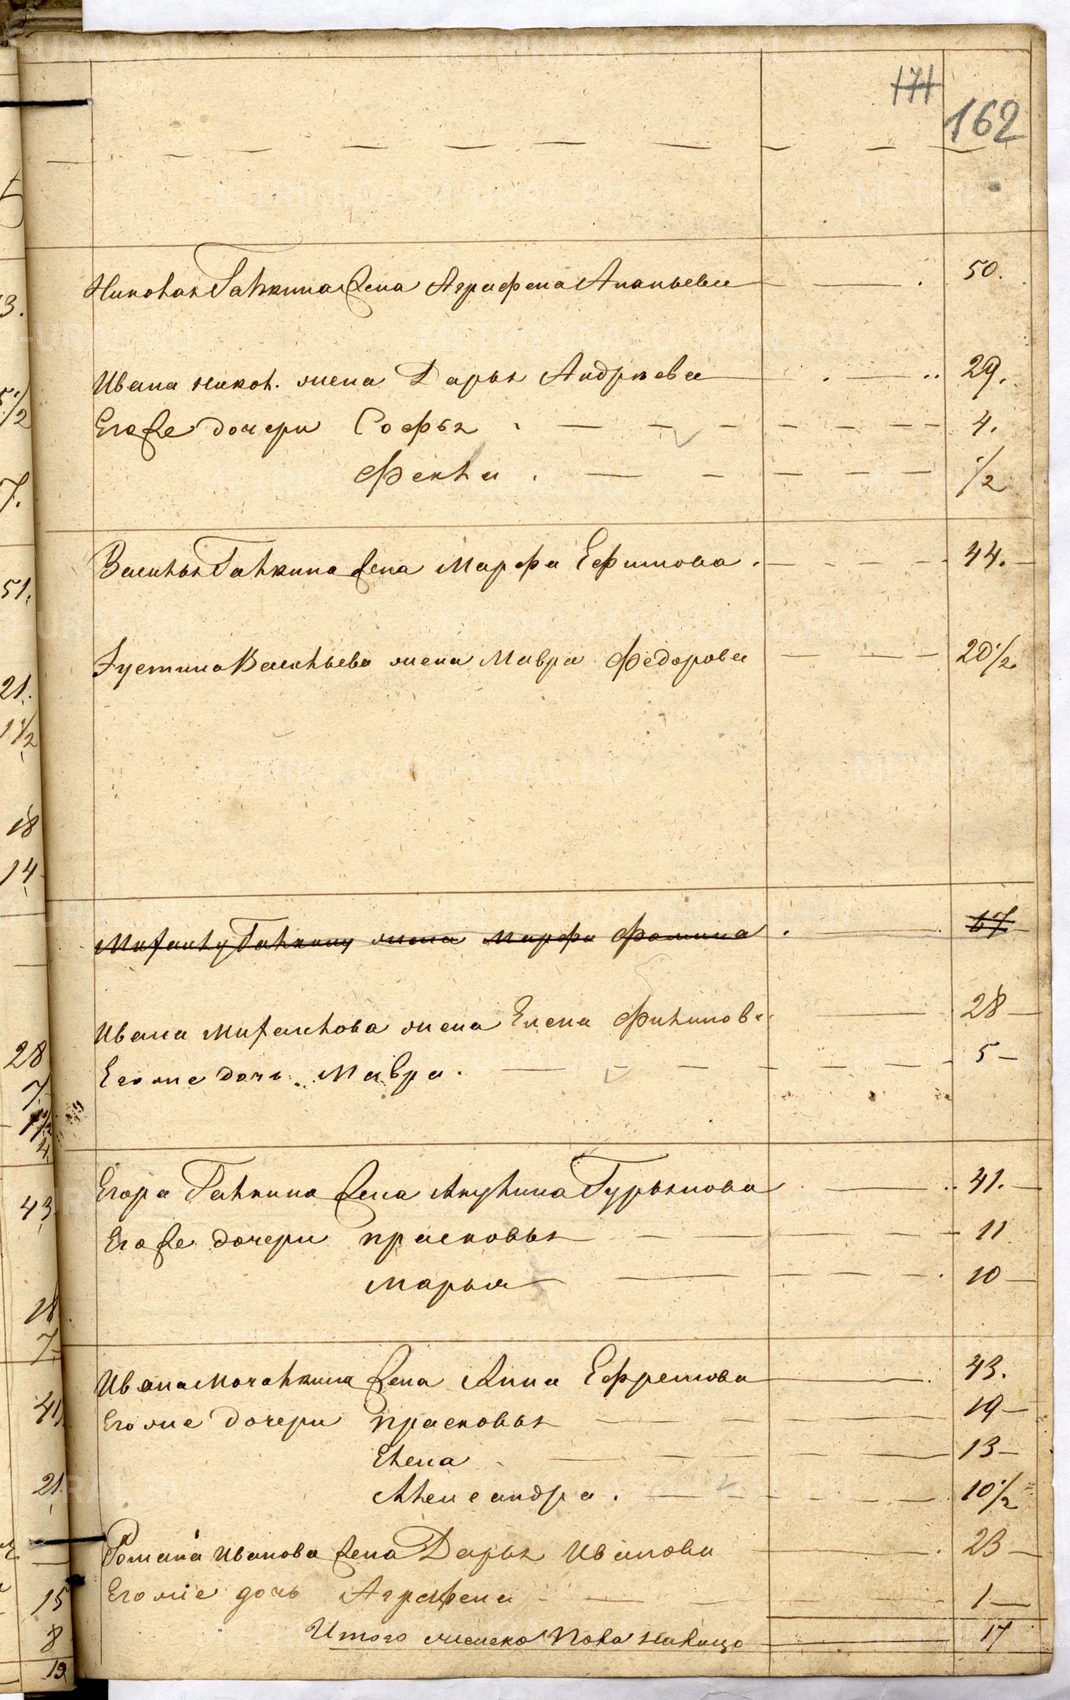 171
162
Николая Галкина жена Аграфена Ананьева 50.
Ивана никол. жена Дарья Андреева 29.
Его же дочери Софья 4.
Фекла 1/2
Василья Галкина жена Марфа Ефимова 44.
Устина Васильева жена Мавра Федорова 20 1/2
Михайлы Галкина жена Марфа Фомина 67
Ивана Михайлова жена Елена Филипова 28
Его же дочь Мавра 5
Егора Галкина жена Акулина Гурьянова 41.
Его же дочери Прасковья 11
Марья 10
Ивана Мочалкина жена Анна Ефремова 43.
Его же дочери Прасковья 19
Елена 13
Александра 10 1/2
Романа Иванова жена Дарья Иванова 23
Его же дочь Аграфена 1
Итого женска пола налицо 17
3.
7.
51.
21.
1 1/2
18
14
28
7.
4
43
18
7.
41
21.
15
8
19